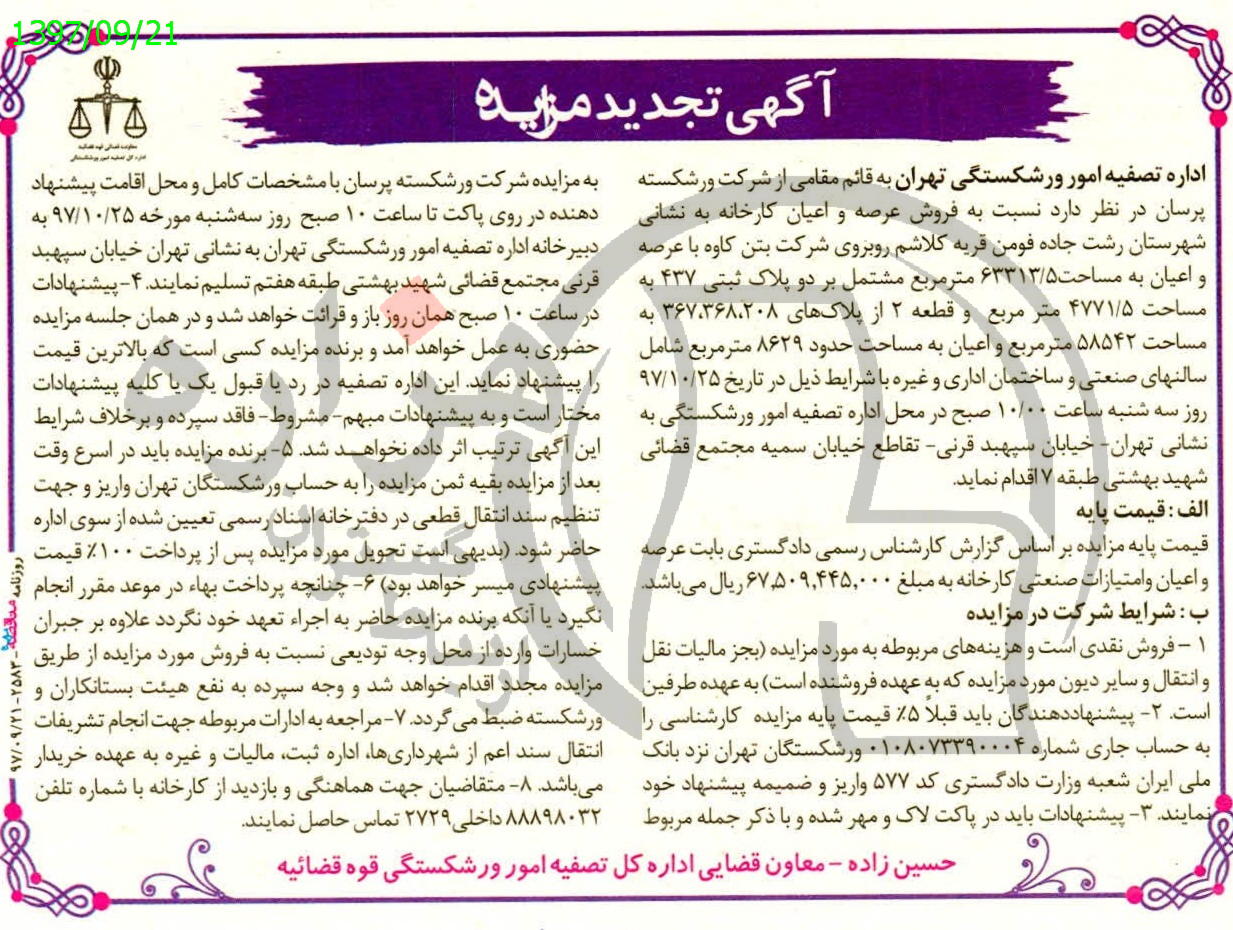 1397/09/21
آگهی تجدید مزایده
معاونت قضائی قوه قضائیه
اداره کل تصفیه امور ورشکستگی
اداره تصفیه امور ورشکستگی تهران به قائم مقامی از شرکت ورشکسته
پرسان در نظر دارد نسبت به فروش عرصه و اعیان کارخانه به نشانی
شهرستان رشت جاده فومن قریه کلاشم روبروی شرکت بتن کاوه با عرصه
و اعیان به مساحت ۶۳۳۱۳/۵ مترمربع مشتمل بر دو پلاک ثبتی ۴۳۷ به
مساحت ۴۷۷۱/۵ متر مربع و قطعه ۲ از پلاک‌های ۳۶۷،۳۶۸،۲۰۸ به
مساحت ۵۸۵۴۲ مترمربع و اعیان به مساحت حدود ۸۶۲۹ مترمربع شامل
سالنهای صنعتی و ساختمان اداری و غیره با شرایط ذیل در تاریخ ۹۷/۱۰/۲۵
روز سه شنبه ساعت ۱۰/۰۰ صبح در محل اداره تصفیه امور ورشکستگی به
نشانی تهران- خیابان سپهبد قرنی- تقاطع خیابان سمیه مجتمع قضائی
شهید بهشتی طبقه ۷ اقدام نماید.
الف: قیمت پایه
قیمت پایه مزایده بر اساس گزارش کارشناس رسمی دادگستری بابت عرصه
و اعیان وامتیازات صنعتی کارخانه به مبلغ ۶۷,۵۰۹,۴۴۵,۰۰۰ ریال می‌باشد.
ب: شرایط شرکت در مزایده
۱ – فروش نقدی است و هزینه‌های مربوطه به مورد مزایده (بجز مالیات نقل
و انتقال و سایر دیون مورد مزایده که به عهده فروشنده است) به عهده طرفین
است. ۲- پیشنهاددهندگان باید قبلاً ۵٪ قیمت پایه مزایده کارشناسی را
به حساب جاری شماره ۰۱۰۸۰۷۳۳۹۰۰۰۴ ورشکستگان تهران نزد بانک
ملی ایران شعبه وزارت دادگستری کد ۵۷۷ واریز و ضمیمه پیشنهاد خود
نمایند. ۳- پیشنهادات باید در پاکت لاک و مهر شده و با ذکر جمله مربوط
به مزایده شرکت ورشکسته پرسان با مشخصات کامل و محل اقامت پیشنهاد
دهنده در روی پاکت تا ساعت ۱۰ صبح روز سه‌شنبه مورخه ۹۷/۱۰/۲۵ به
دبیرخانه اداره تصفیه امور ورشکستگی تهران به نشانی تهران خیابان سپهبد
قرنی مجتمع قضائی شهید بهشتی طبقه هفتم تسلیم نمایند. ۴- پیشنهادات
در ساعت ۱۰ صبح همان روز باز و قرائت خواهد شد و در همان جلسه مزایده
حضوری به عمل خواهد آمد و برنده مزایده کسی است که بالاترین قیمت
را پیشنهاد نماید. این اداره تصفیه در رد یا قبول یک یا کلیه پیشنهادات
مختار است و به پیشنهادات مبهم- مشروط- فاقد سپرده و برخلاف شرایط
این آگهی ترتیب اثر داده نخواهد شد. ۵- برنده مزایده باید در اسرع وقت
بعد از مزایده بقیه ثمن مزایده را به حساب ورشکستگان تهران واریز و جهت
تنظیم سند انتقال قطعی در دفترخانه اسناد رسمی تعیین شده از سوی اداره
حاضر شود. (بدیهی است تحویل مورد مزایده پس از پرداخت ۱۰۰٪ قیمت
پیشنهادی میسر خواهد بود) ۶- چنانچه پرداخت بهاء در موعد مقرر انجام
نگیرد یا آنکه برنده مزایده حاضر به اجراء تعهد خود نگردد علاوه بر جبران
خسارات وارده از محل وجه تودیعی نسبت به فروش مورد مزایده از طریق
مزایده مجدد اقدام خواهد شد و وجه سپرده به نفع هیئت بستانکاران و
ورشکسته ضبط می گردد. ۷- مراجعه به ادارات مربوطه جهت انجام تشریفات
انتقال سند اعم از شهرداری‌ها، اداره ثبت، مالیات و غیره به عهده خریدار
می‌باشد. ۸- متقاضیان جهت هماهنگی و بازدید از کارخانه با شماره تلفن
۸۸۸۹۸۰۳۲ داخلی ۲۷۲۹ تماس حاصل نمایند.
حسین زاده – معاون قضایی اداره کل تصفیه امور ورشکستگی قوه قضائیه
روزنامه مناقصه مزایده - ۲۵۸۳ - ۹۷/۰۹/۲۱
هزاره